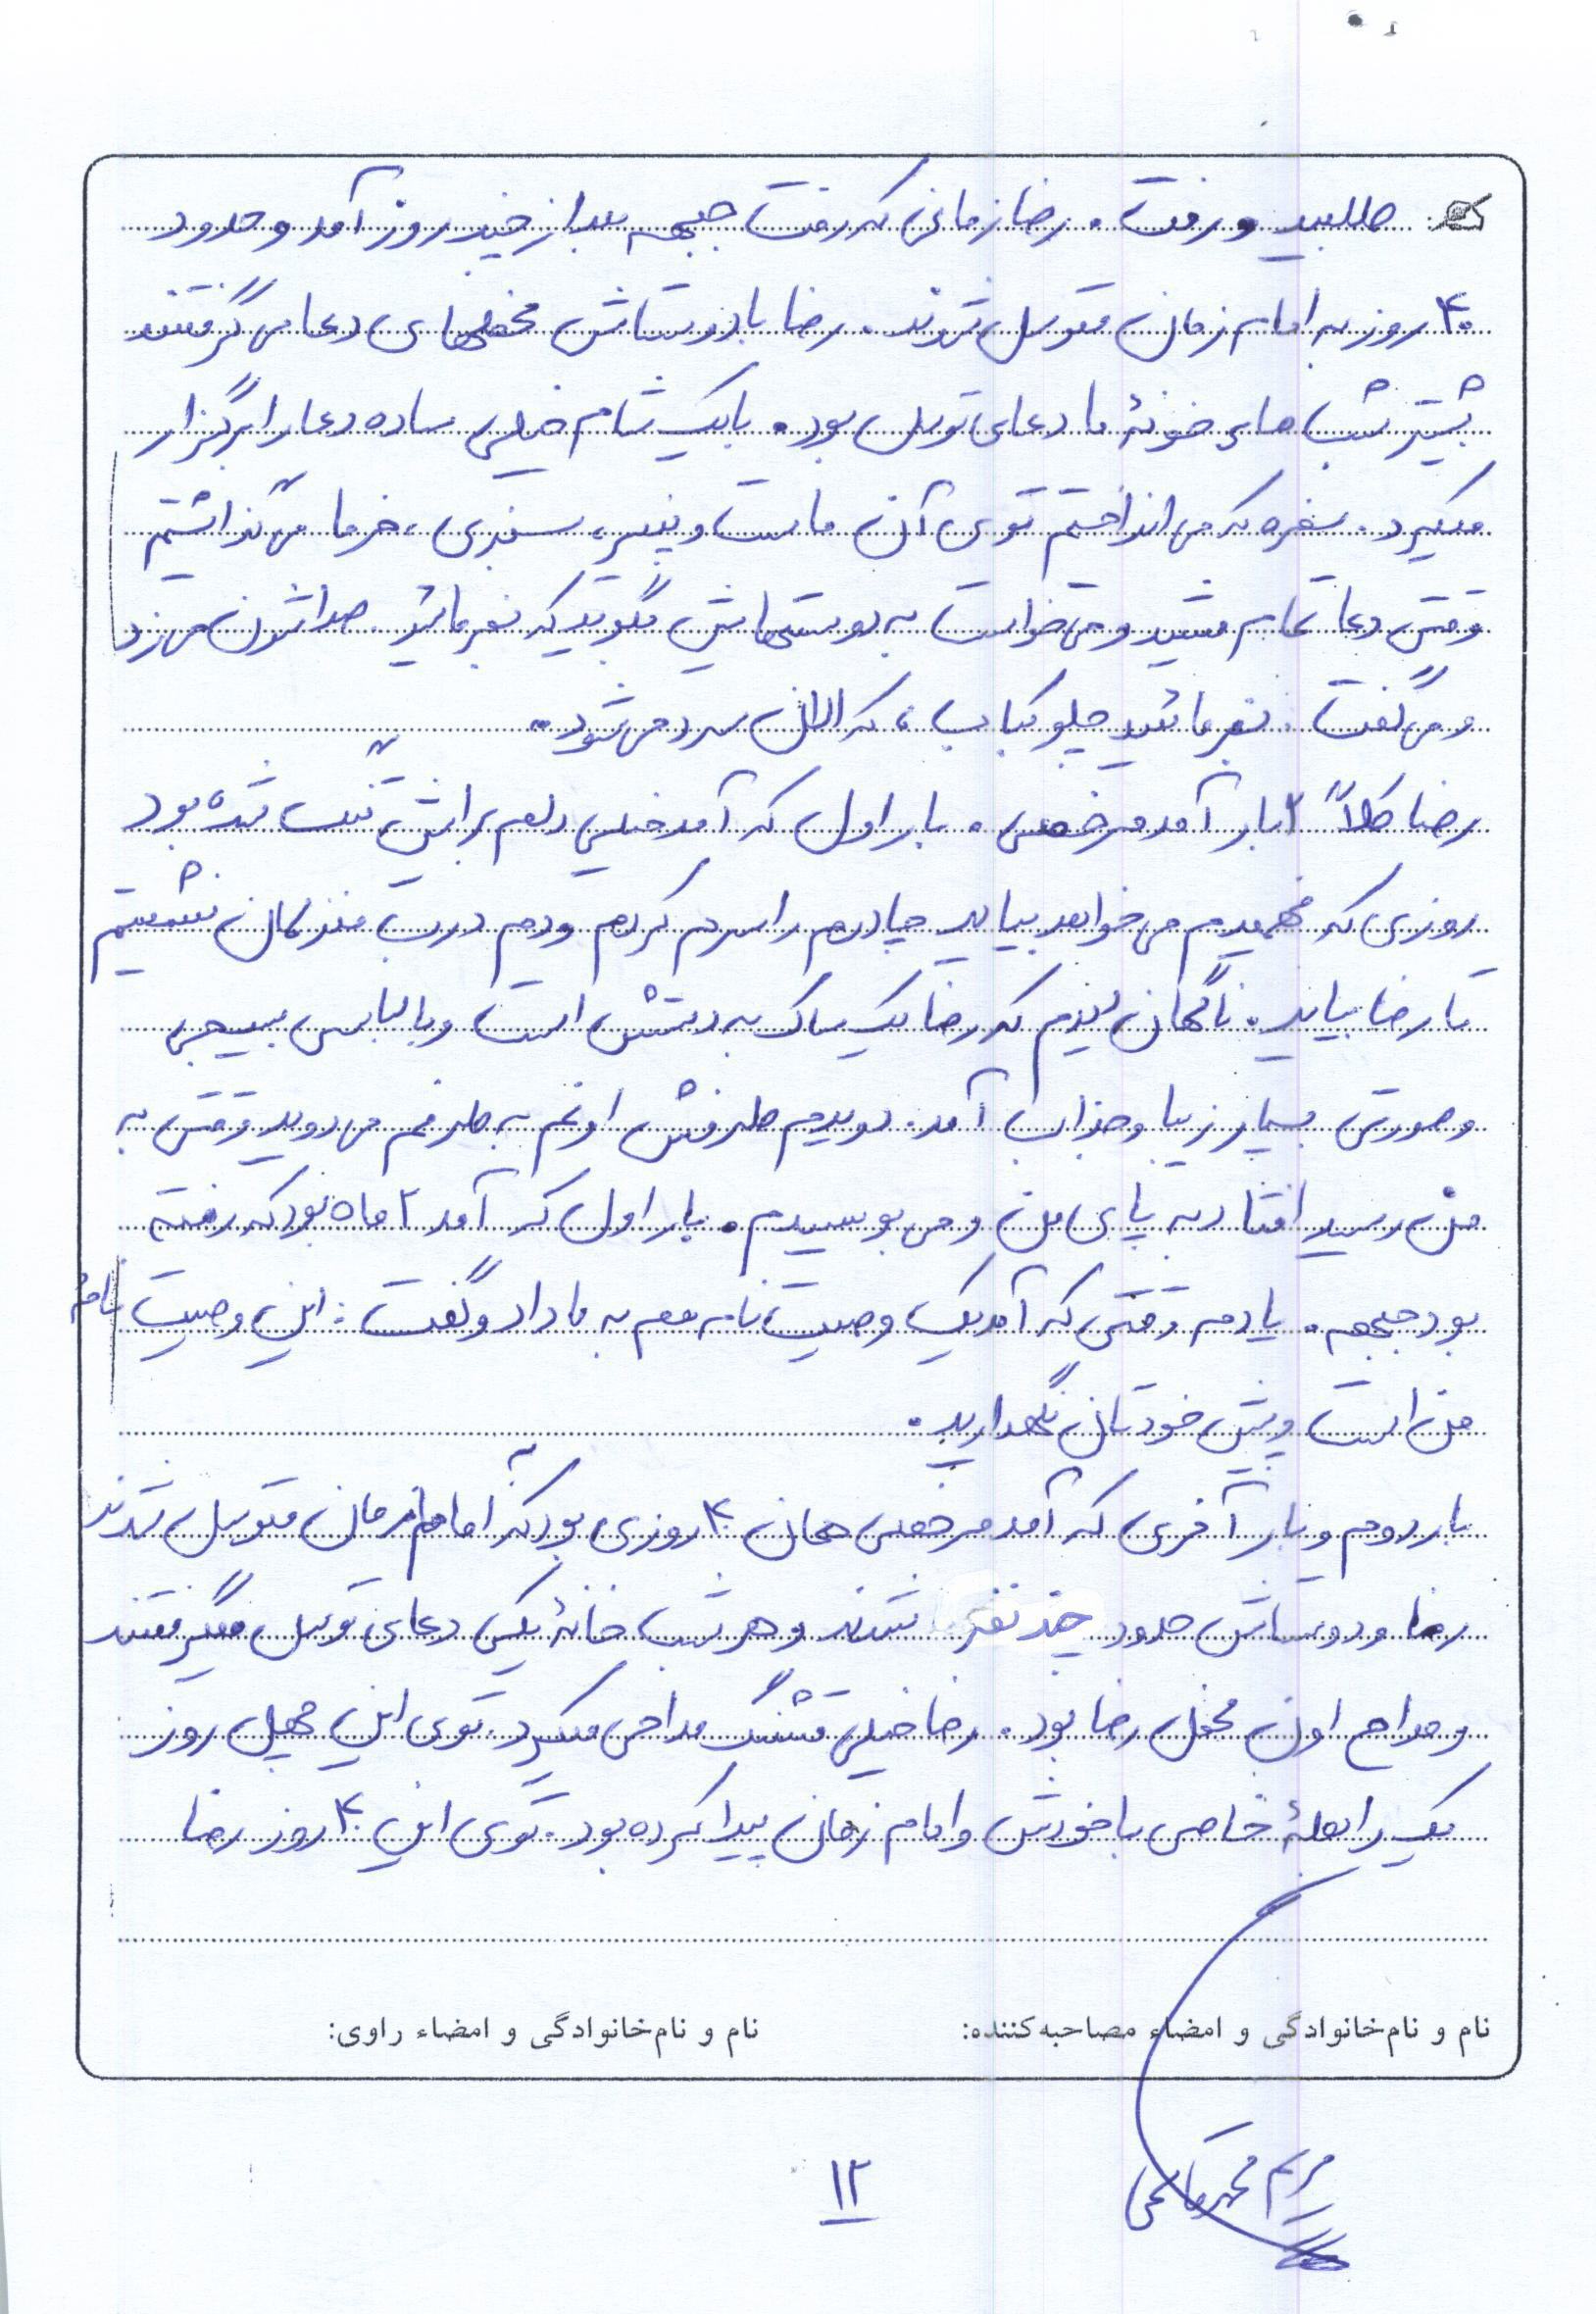 طلبید و رفت. رضا زمانی که رفت جبهه بعد از چند روز آمد و حدود
۴۰ روز به امام زمان متوسل شدند. رضا با دوستاش محفلهای دعا می گرفتند
بیشتر شب های خونهٔ ما دعای توسل بود. با یک شام خیلی ساده دعا را برگزار
میکرد. سفره که می انداختم توی آن ماست و پنیر، سبزی، خرما می گذاشتم
وقتی دعا تمام میشد و می خواست به دوستهایش بگوید که بفرمائید. صداشون می زد
و می گفت: بفرمائید چلوکباب، که الان سرد می شود.
رضا کلاً ۲ بار آمد مرخصی. بار اول که آمد خیلی دلم برایش تنگ شده بود
روزی که فهمیدم می خواهد بیاید چادرم را سرم کردم و دم درب منزلمان نشستم
تا رضا بیاید. ناگهان دیدم که رضا یک ساک به دستش است و با لباس بسیجی
و صورتی بسیار زیبا و جذاب آمد. دویدم طرفش اونم به طرفم می دوید وقتی به
من رسید افتاد به پای من و می بوسیدم. بار اول که آمد ۲ ماه بود که رفته
بود جبهه. یادمه وقتی که آمد یک وصیت نامه هم به ما داد و گفت: این وصیت نامهٔ
من است و پیش خودتان نگهدارید.
بار دوم و بار آخری که آمد مرخصی همان ۴۰ روزی بود که به امام زمان متوسل شدند
رضا و دوستاش حدود چند نفر شدند و هر شب خانهٔ یکی دعای توسل میگرفتند
و مداح اول محفل رضا بود. رضا خیلی قشنگ مداحی میکرد. توی این چهل روز
یک رابطهٔ خاصی با خودش و امام زمان پیدا کرده بود. توی این ۴۰ روز رضا
نام و نام خانوادگی و امضاء مصاحبه کننده: نام و نام خانوادگی و امضاء راوی:
مریم
۱۲